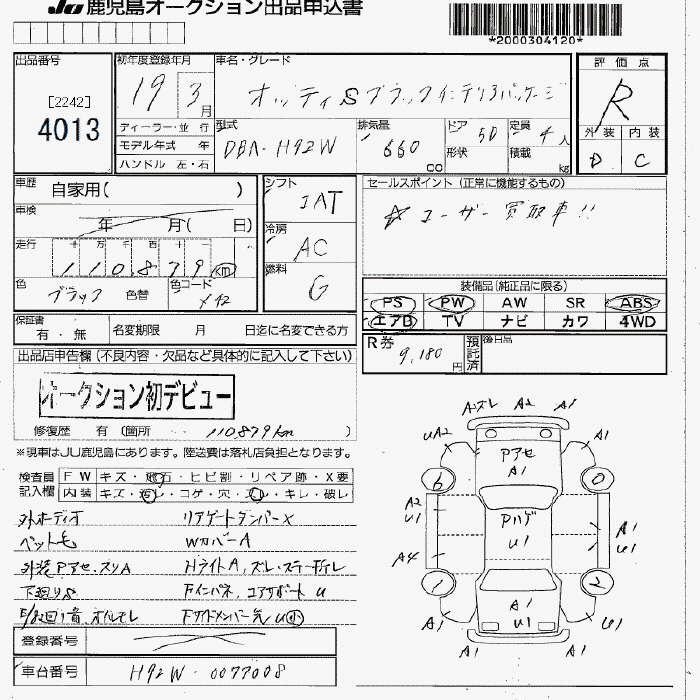 JU 鹿児島オークション出品申込書
*2000304120*
出品番号
[2242]
4013
初年度登録年月
19 3月
ディーラー・並 行
モデル年式 年
ハンドル 左・右
車名・グレード
オッティ S ブラックインテリアパッケージ
型式
DBA-H92W
排気量
660 cc
ドア 5D
形状
定員 4 人
積載 kg
評 価 点
R
外 装 内 装
D C
車歴 自家用( )
車検 年 月( 日)
走行 十 万 千 百 十
110,879 km
色 ブラック 色替
色コード X42
シフト IAT
冷房 AC
燃料 G
セールスポイント (正常に機能するもの)
☆ユーザー買取車!!
装備品(純正品に限る)
PS PW AW SR ABS
エアB TV ナビ カワ 4WD
保証書 有・無
名変期限 月 日迄に名変できる方
R券 9,180 円
預託済
後日品
出品店申告欄(不良内容・欠品など具体的に記入して下さい)
オークション初デビュー
修復歴 有 (箇所 110879km )
※現車はJU鹿児島にあります。陸送費は落札店負担となります。
検査員記入欄
FW キズ・飛石・ヒビ割・リペア跡・X要
内装 キズ・汚レ・コゲ・穴・スレ・キレ・破レ
外オーディオ リアゲートダンパーX
ペット毛 WカバーA
外装Pアセ・スリA HライトA、ズレ・ステー折レ
下廻りS Fインパネ、コアサポートU
Fサイドメンバー先U小
登録番号
車台番号 H92W-0077008
Aズレ A2 A1
UA2 A1
Pアセ
A1
6 0
A2
U1
Pハゲ
U1
A1
U1
A4
1 2
A1
U1
A1 A1
A1 A1